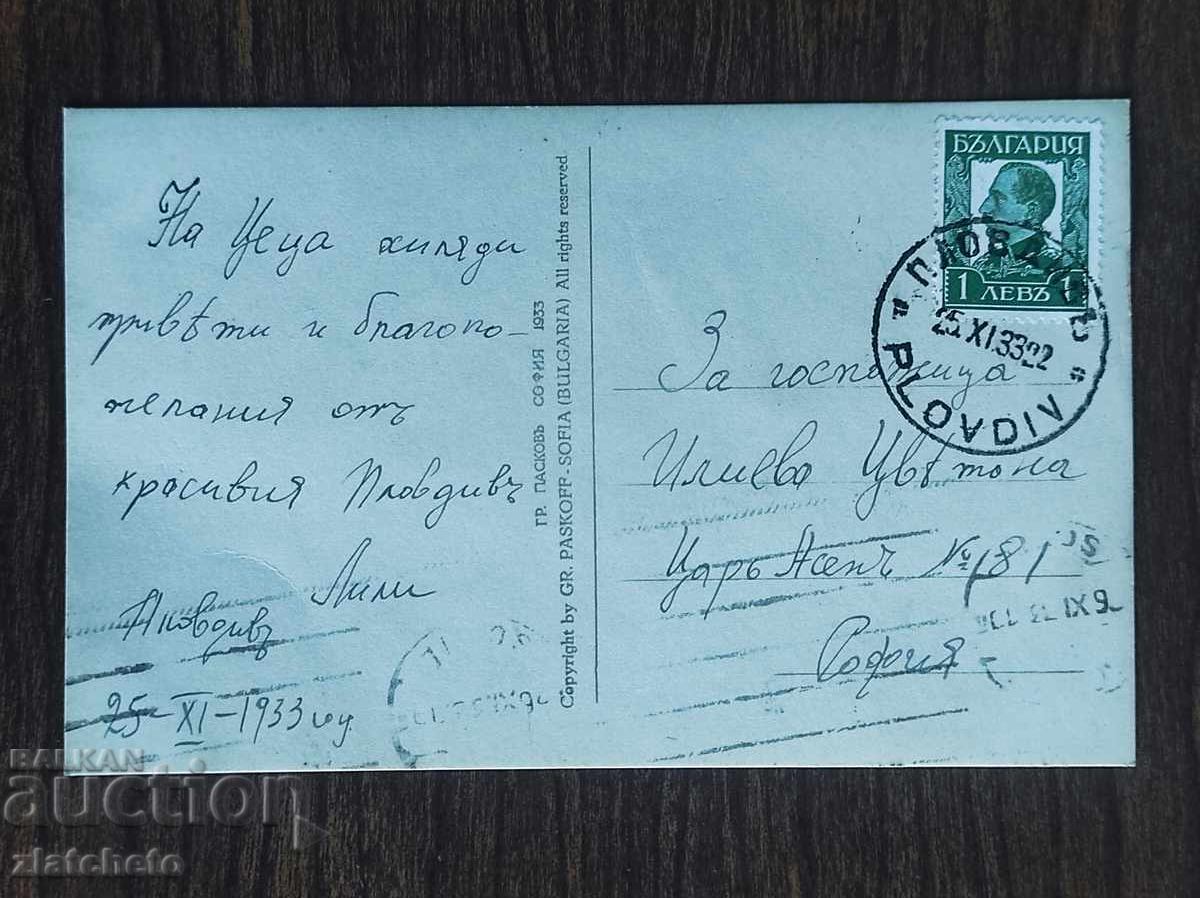 На Цеца хиляди
привѣти и благопо-
желания отъ
красивия Пловдивъ
Лили
Пловдивъ
25-XI-1933 год
ГР. ПАСКОВЪ СОФИЯ 1933
Copyright by GR. PASKOFF-SOFIA (BULGARIA) All rights reserved
БЪЛГАРИЯ
1 ЛЕВЪ
ПЛОВДИВЪ
25.XI.33 22
PLOVDIV
За госпожица
Илиева Цвѣтана
Царь Асенъ № 181
София
BALKAN
auction
zlatcheto